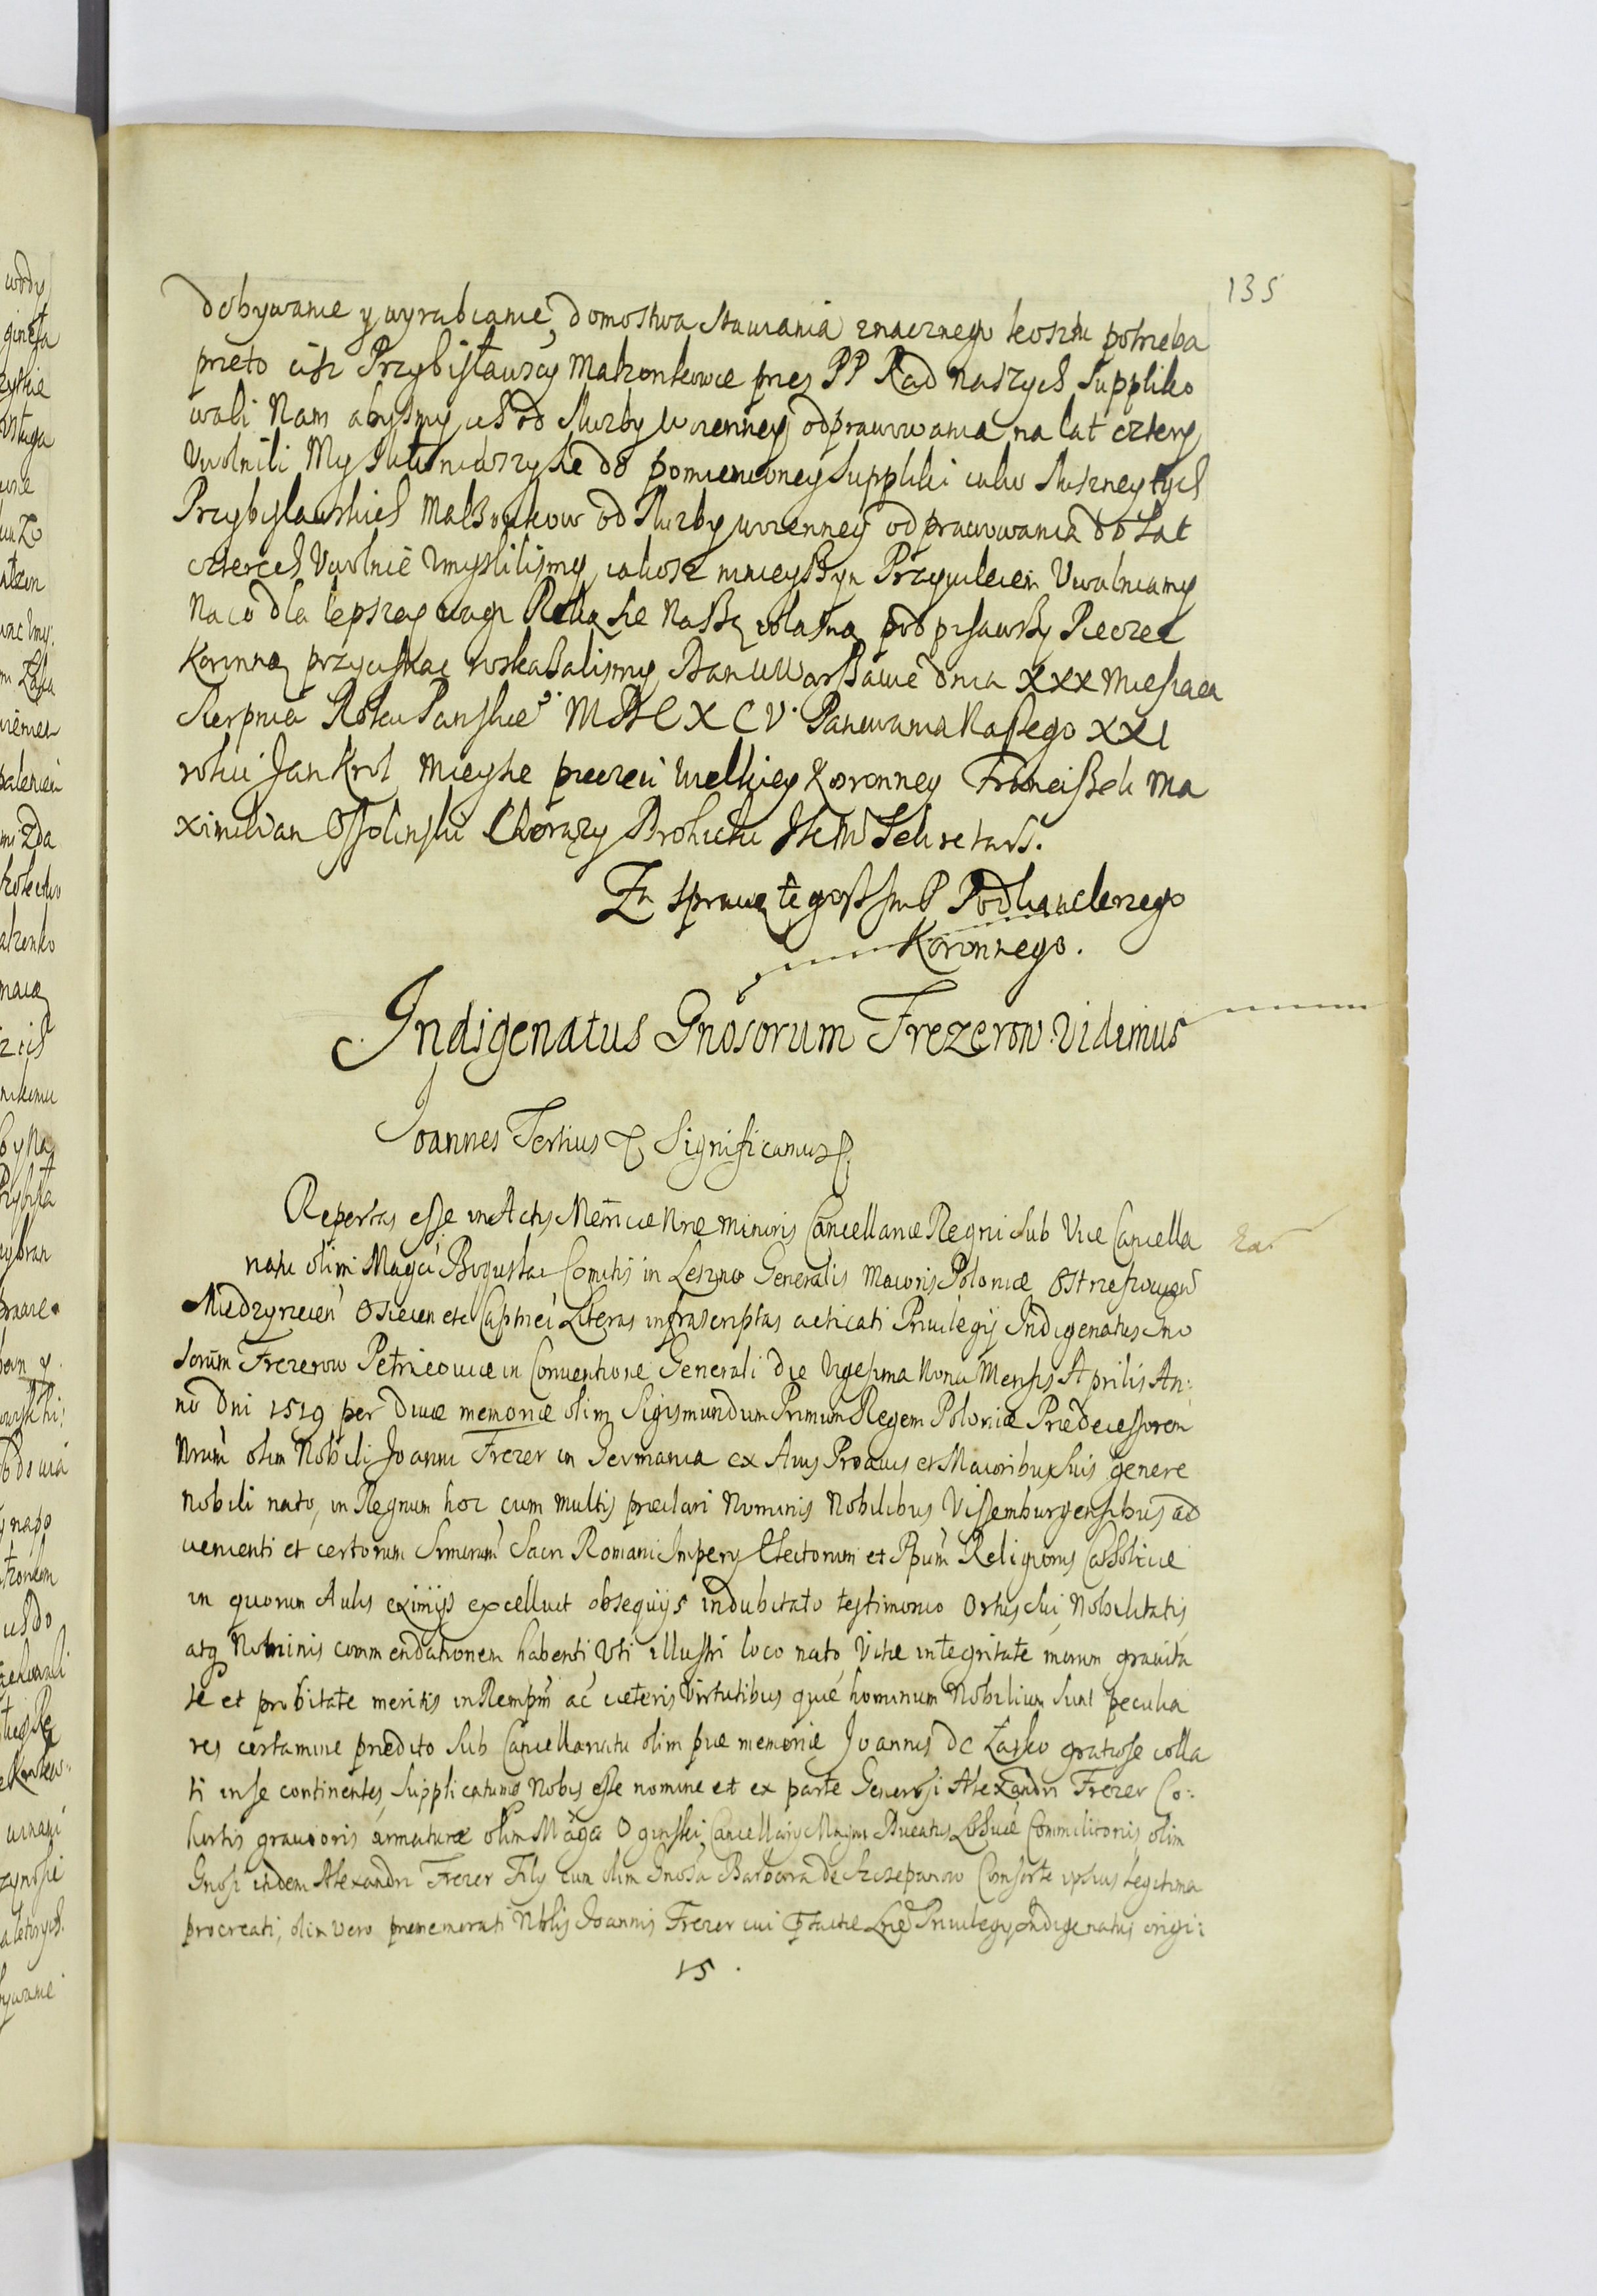 135
dobywanie y wyrabianie, domostwa stawiania znacznego kosztu potrzeba
przeto ciż Przybisławscy Małzonkowie przez PP Rad naszych Suppliko
wali Nam abysmy ich od sluzby woienney odprawowania na lat cztery
Vwolnili My skłoniwszy sie do pomienioney Suppliki iako słuszney tych
Przybyławskich Małżonkow od sluzby woienney odprawowania do Lat
czterech Vwolnić Vmyslilismy, iakosz ninieyßym Przywileiem Vwalniamy
Na co dla lepszey wagi Ręką sie Naßą własną podpisawßy Pieczęć
Koronną przycisnąć roskaßalismy, Dan w Warßawie dnia XXX Miesiąca
Sierpnia Roku Panskie⁰ MDCXCV. Panowania Naßego XXI
roku Jan Krol Mieysce pieczęci wielkiey Koronney Franciszek Ma
ximilian Ossolinski Chorąży Drohicki JKM Sekretarß.
Za sprawą tegoß JmP Podkanclerzego
Koronnego.
Indigenatus Gnosorum Frezerow Vidimus
Joannes Tertius &c Significamus &c
Repertas esse in Actis Metricæ Nræ minoris Cancellariæ Regni sub Vice Cancella
natu olim Magci Boguslai Comitis in Leszno Generalis Maioris Poloniæ Ostrzeszowien
Miedzyrzecen Osiecen etc Captnei Literas infrascriptas acticati Priuilegij Indigenatus Gno
sorum Frezerow Petricoviæ in Conventione Generali die Vigesima Nona Mensis Aprilis An:
no Dni 1519 per Diuæ memoriæ olim Sigismundum Primum Regem Poloniæ Prædecessorem
Nrum olim Nobili Joanni Frezer in Germania ex Auis Proauis et Maioribus suis genere
Nobili nato, in Regnum hoc cum multis præclari Nominis Nobilibus Vissemburgensibus ad
uenienti et certorum Srmorum Sacri Romani Imperij Electorum et Ppum Religionis Catholicæ
in quorum Aulis eximijs excelluit obsequijs indubitato testimonio Ortus sui, Nobilitatis,
atq Nominis commendationem habenti Vti illustri loco nato, Vitæ integritate, morum grauita
te et probitate meritis in Rempm ac ceteris Virtutibus quæ hominum Nobilium sunt peculia
res certamine prædito Sub Cancellariatu olim piæ memoriæ Joannis de Lasko gratiose colla
ti in se continentes, supplicatumq Nobis esse nomine et ex parte Generosi Alexandri Frezer Co:
hortis grauioris armaturæ olim Magci Oginski Cancellarij Magni Ducatus Lithuæ Commilitonis, olim
Gnosi itidem Alexandri Frezer Filij cum olim Gnosa Barbara de Szczepanow Consorte ipsius legitima
procreati, olim vero præmemorati Nblis Joannis Frezer cui Lræ Priuilegij Indigenatus origi:
15.